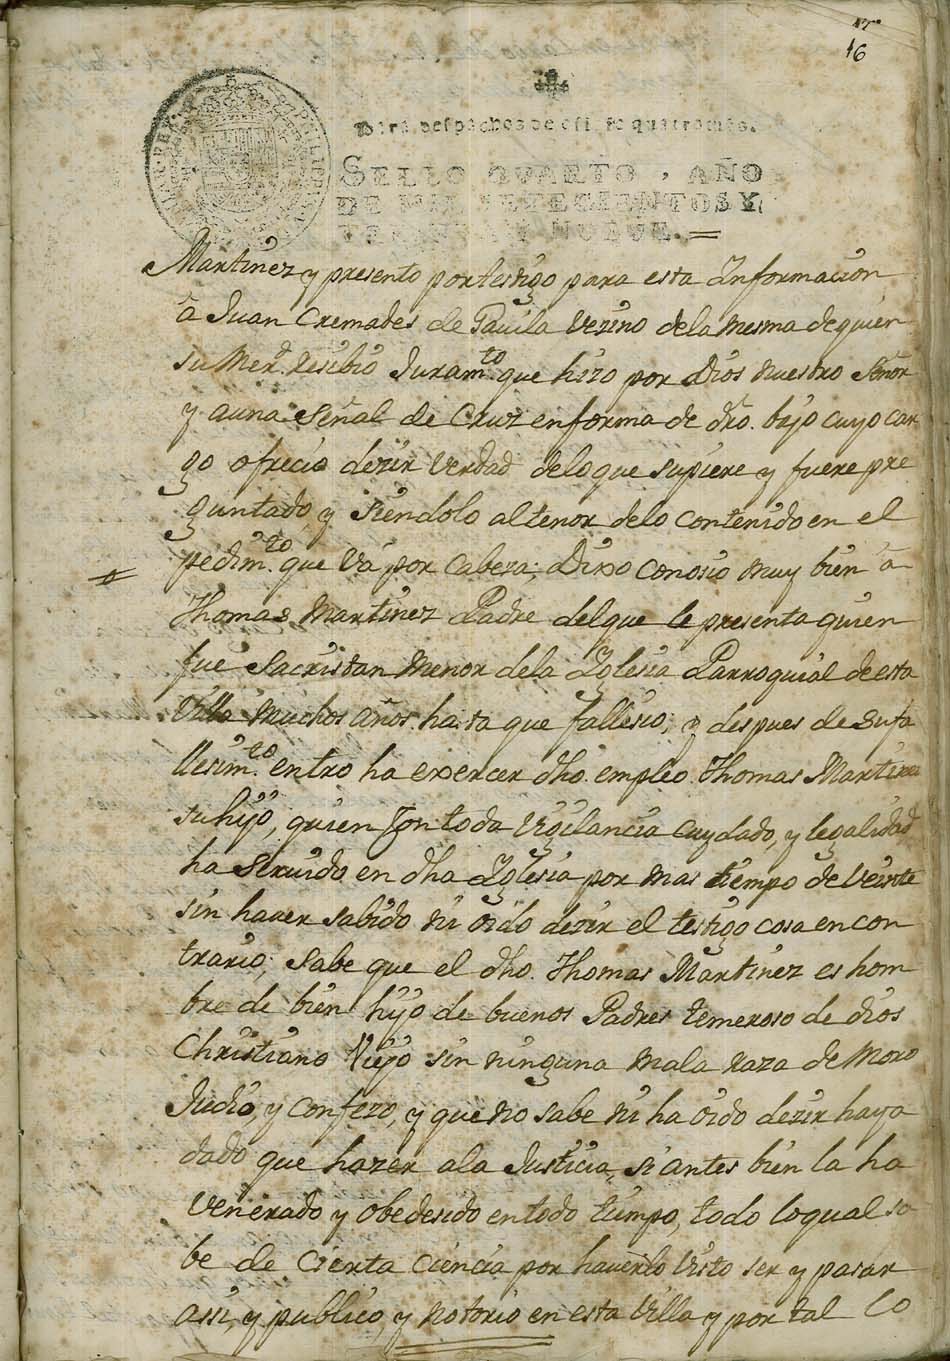 16
Para despachos de ofi  quatro mrs.
SELLO QVARTO, AÑO
DE MIL SETECIENTOS Y
 Y NUEVE.
Martinez y presento por testigo para esta Informacion
â Juan Cremades de Pauila Vezino dela mesma de quien
su Merd. resibio Juramto. que hizo por Dios nuestro Señor
y a una Señal de Cruz en forma de dro. bajo cuyo car
go ofrecio dezir Verdad delo que supiere y fuere pre
guntado, y siendolo al tenor delo contenido en el
pedimto. que Va por Cabeza; Dixo conosio muy bien â
Thomas Martinez Padre del que le presenta quien
fue Sacristan Menor dela Yglesia Parroquial de esta
Villa Muchos años hasta que fallesio; y despues de su fa
llesimto. entro ha exercer dho. empleo Thomas Martinez
su hijo, quien con toda Vigilancia Cuydado, y legalidad
ha Seruido en dha Yglesia por mas tiempo de Veinte
sin hauer sabido ni oido dezir el testigo cosa en con
trario; Sabe que el dho. Thomas Martinez es hom
bre de bien hijo de buenos Padres temeroso de Dios
Christiano Viejo sin ninguna mala raza de Moro
Judio, y Confezo, y que no sabe ni ha oido dezir haya
dado que hazer ala Justicia, si antes bien la ha
Venerado y obedesido en todo tiempo, todo loqual sa
be de Cierta Ciencia por hauerlo Visto ser y pasar
assi, y publico, y notorio en esta Villa y por tal lo